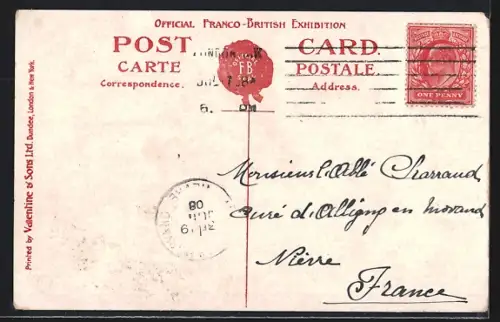 OFFICIAL FRANCO-BRITISH EXHIBITION
POST CARD.
CARTE POSTALE.
Correspondence. Address.
FB
LONDON
ONE PENNY
Monsieur l'Abbé Charraud
Curé d'Alligny en Morvand
Nièvre
France
08
Printed by Valentine & Sons Ltd. Dundee, London & New York.